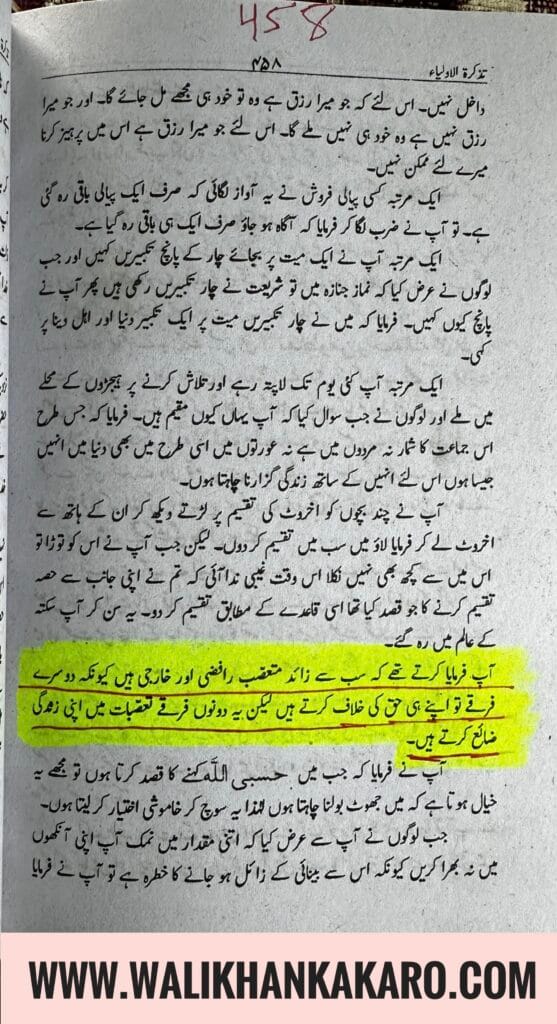 458
تذکرۃ الاولیاء
۴۵۸
داخل نہیں۔ اس لئے کہ جو میرا رزق ہے وہ تو خود ہی مجھے مل جائے گا۔ اور جو میرا
رزق نہیں ہے وہ خود ہی نہیں ملے گا۔ اس لئے جو میرا رزق ہے اس میں پرہیز کرنا
میرے لئے ممکن نہیں۔
ایک مرتبہ کسی پیالی فروش نے یہ آواز لگائی کہ صرف ایک پیالی باقی رہ گئی
ہے۔ تو آپ نے ضرب لگا کر فرمایا کہ آگاہ ہو جاؤ صرف ایک ہی باقی رہ گیا ہے۔
ایک مرتبہ آپ نے ایک میت پر بجائے چار کے پانچ تکبیریں کہیں اور جب
لوگوں نے عرض کیا کہ نماز جنازہ میں تو شریعت نے چار تکبیریں رکھی ہیں پھر آپ نے
پانچ کیوں کہیں۔ فرمایا کہ میں نے چار تکبیریں میت پر ایک تکبیر دنیا اور اہل دینا پر
کہی۔
ایک مرتبہ آپ کئی یوم تک لاپتہ رہے اور تلاش کرنے پر ہیجڑوں کے محلے
میں ملے اور لوگوں نے جب سوال کیا کہ آپ یہاں کیوں مقیم ہیں۔ فرمایا کہ جس طرح
اس جماعت کا شمار نہ مردوں میں ہے نہ عورتوں میں اسی طرح میں بھی دنیا میں انہیں
جیسا ہوں اس لئے انہیں کے ساتھ زندگی گزارنا چاہتا ہوں۔
آپ نے چند بچوں کو اخروٹ کی تقسیم پر لڑتے دیکھ کر ان کے ہاتھ سے
اخروٹ لے کر فرمایا لاؤ میں سب میں تقسیم کر دوں۔ لیکن جب آپ نے اس کو توڑا تو
اس میں سے کچھ بھی نہیں نکلا اس وقت غیبی ندا آئی کہ تم نے اپنی جانب سے حصہ
تقسیم کرنے کا جو قصد کیا تھا اسی قاعدے کے مطابق تقسیم کر دو۔ یہ سن کر آپ سکتہ
کے عالم میں رہ گئے۔
آپ فرمایا کرتے تھے کہ سب سے زائد متعصب رافضی اور خارجی ہیں کیونکہ دوسرے
فرقے تو اپنے ہی حق کی خلاف کرتے ہیں لیکن یہ دونوں فرقے تعصبات میں اپنی زندگی
ضائع کرتے ہیں۔
آپ نے فرمایا کہ جب میں حسبی اللہ کہنے کا قصد کرتا ہوں تو مجھے یہ
خیال ہوتا ہے کہ میں جھوٹ بولنا چاہتا ہوں لہٰذا یہ سوچ کر خاموشی اختیار کر لیتا ہوں۔
جب لوگوں نے آپ سے عرض کیا کہ اتنی مقدار میں نمک آپ اپنی آنکھوں
میں نہ بھرا کریں کیونکہ اس سے بینائی کے زائل ہو جانے کا خطرہ ہے تو آپ نے فرمایا
WWW.WALIKHANKAKARO.COM